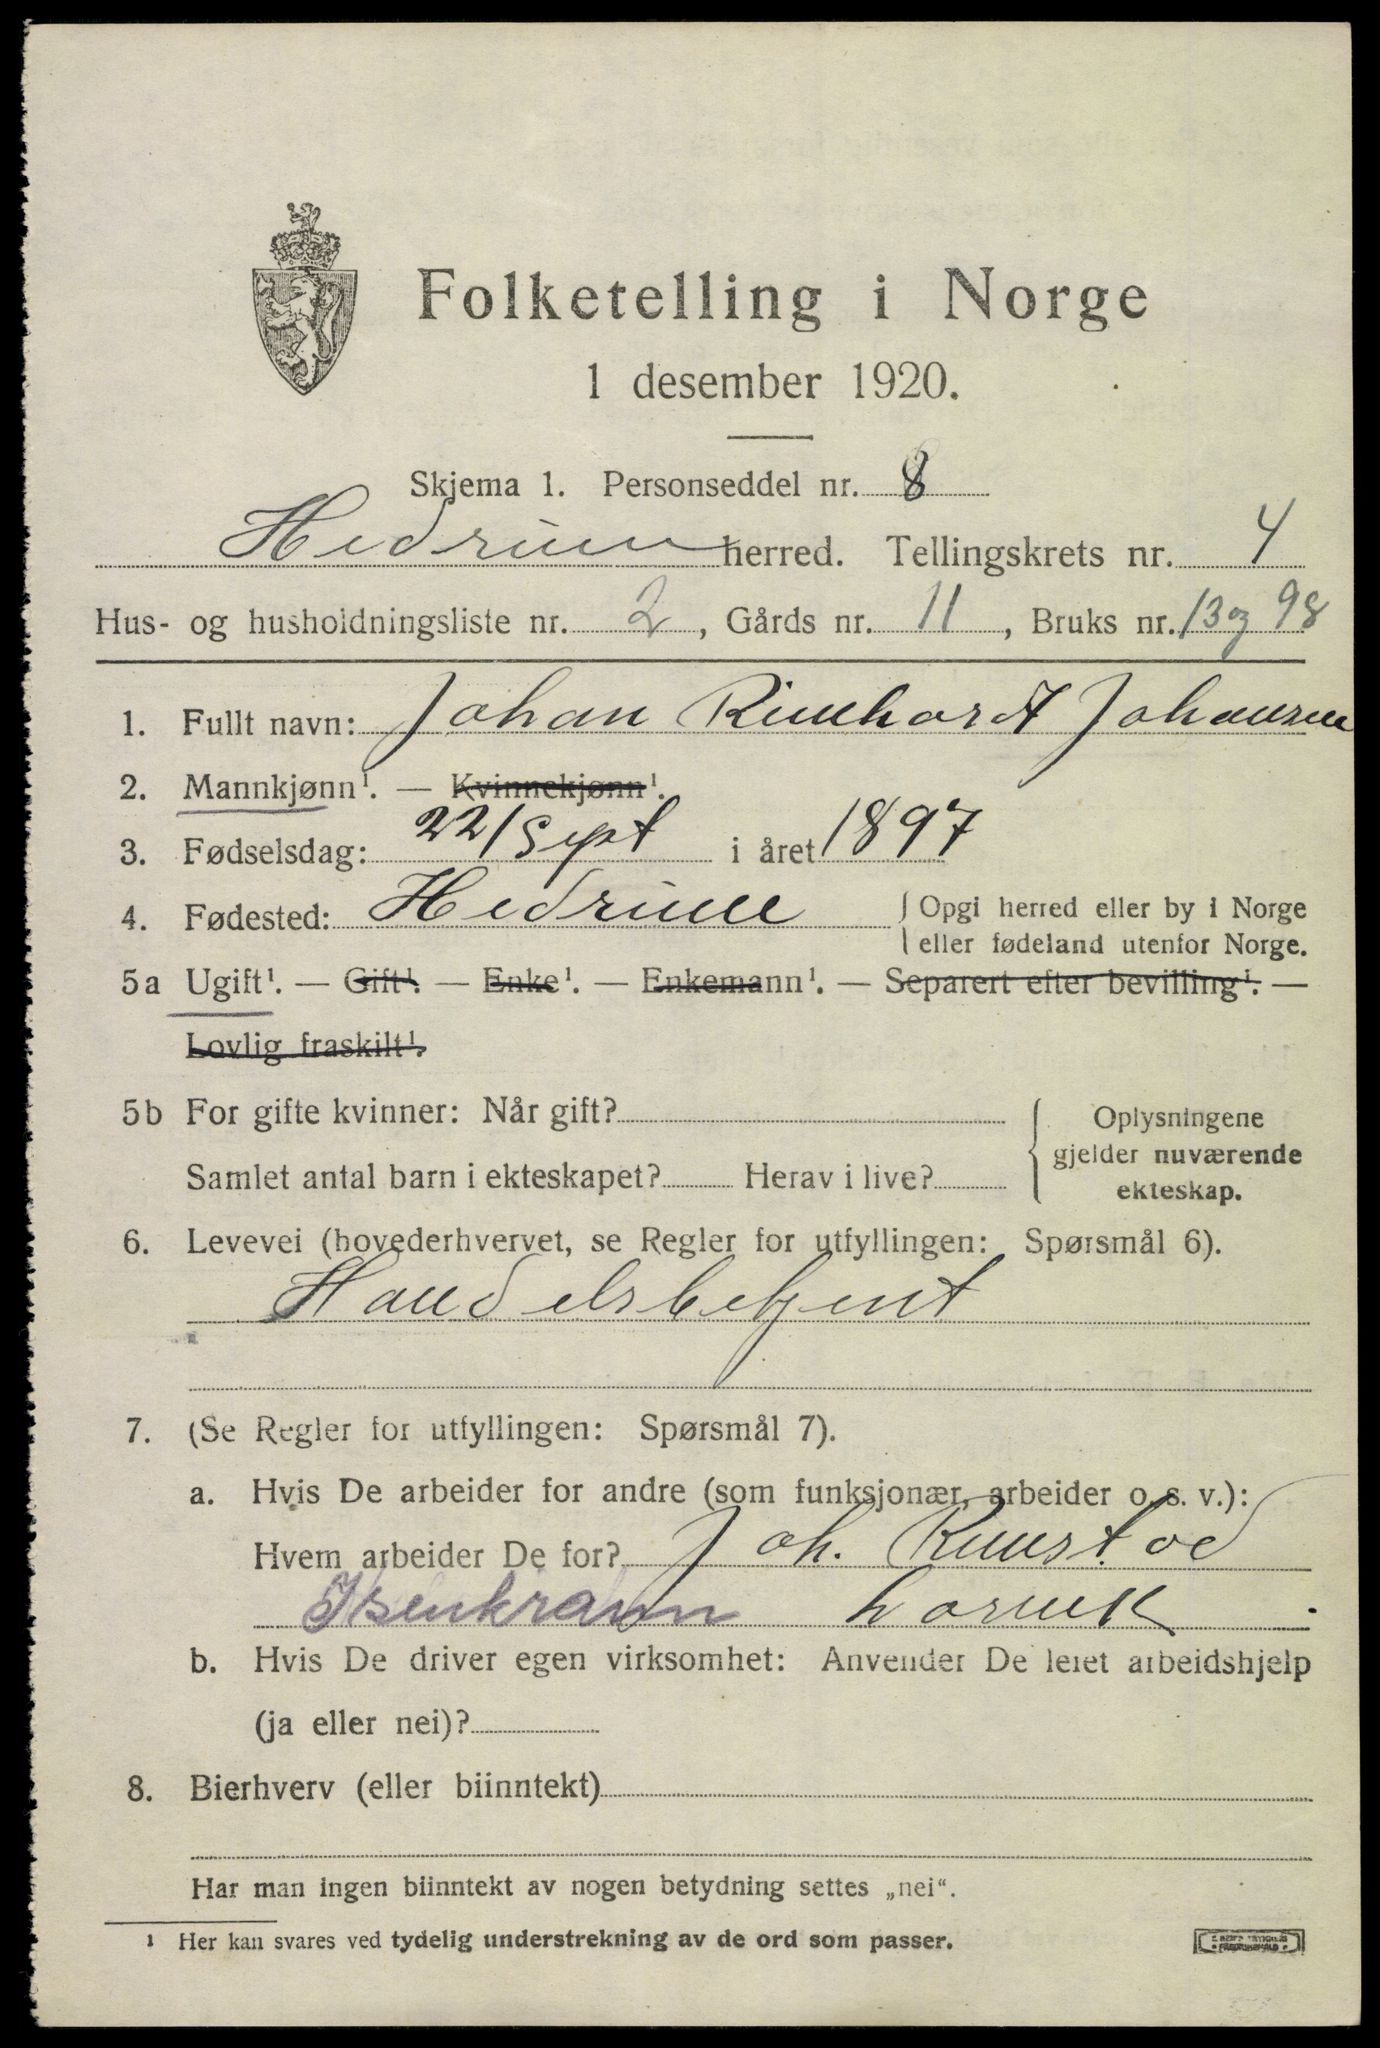 Folketelling i Norge
1 desember 1920.
Skjema 1. Personseddel nr. 8
Hedrum herred. Tellingskrets nr. 4
Hus- og husholdningsliste nr. 2, Gårds nr. 11, Bruks nr. 13 og 98
1. Fullt navn: Johan Rinehardt Johansen
2. Mannkjønn¹. — Kvinnekjønn¹.
3. Fødselsdag: 22/Sept i året 1897
4. Fødested: Hedrum { Opgi herred eller by i Norge
eller fødeland utenfor Norge.
5a Ugift¹. — Gift¹. — Enke¹. — Enkemann¹. — Separert efter bevilling¹. —
Lovlig fraskilt¹.
5b For gifte kvinner: Når gift?
Samlet antal barn i ekteskapet? Herav i live?
Oplysningene
gjelder nuværende
ekteskap.
6. Levevei (hovederhvervet, se Regler for utfyllingen: Spørsmål 6).
Handelsbetjent
7. (Se Regler for utfyllingen: Spørsmål 7).
a. Hvis De arbeider for andre (som funksjonær, arbeider o. s. v.):
Hvem arbeider De for? Joh.
Isenkramm Larvik
b. Hvis De driver egen virksomhet: Anvender De leiet arbeidshjelp
(ja eller nei)?
8. Bierhverv (eller biinntekt)
Har man ingen biinntekt av nogen betydning settes „nei“.
¹ Her kan svares ved tydelig understrekning av de ord som passer.